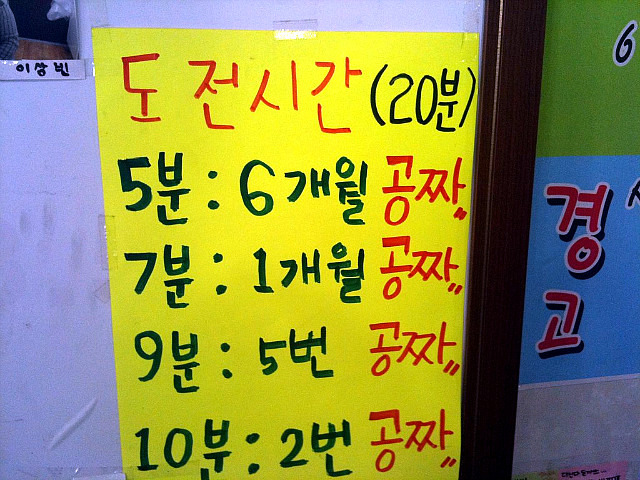 이상빈
도전시간 (20분)
5분 : 6개월 공짜〃
7분 : 1개월 공짜〃
9분 : 5번 공짜〃
10분 : 2번 공짜〃
6
경
고